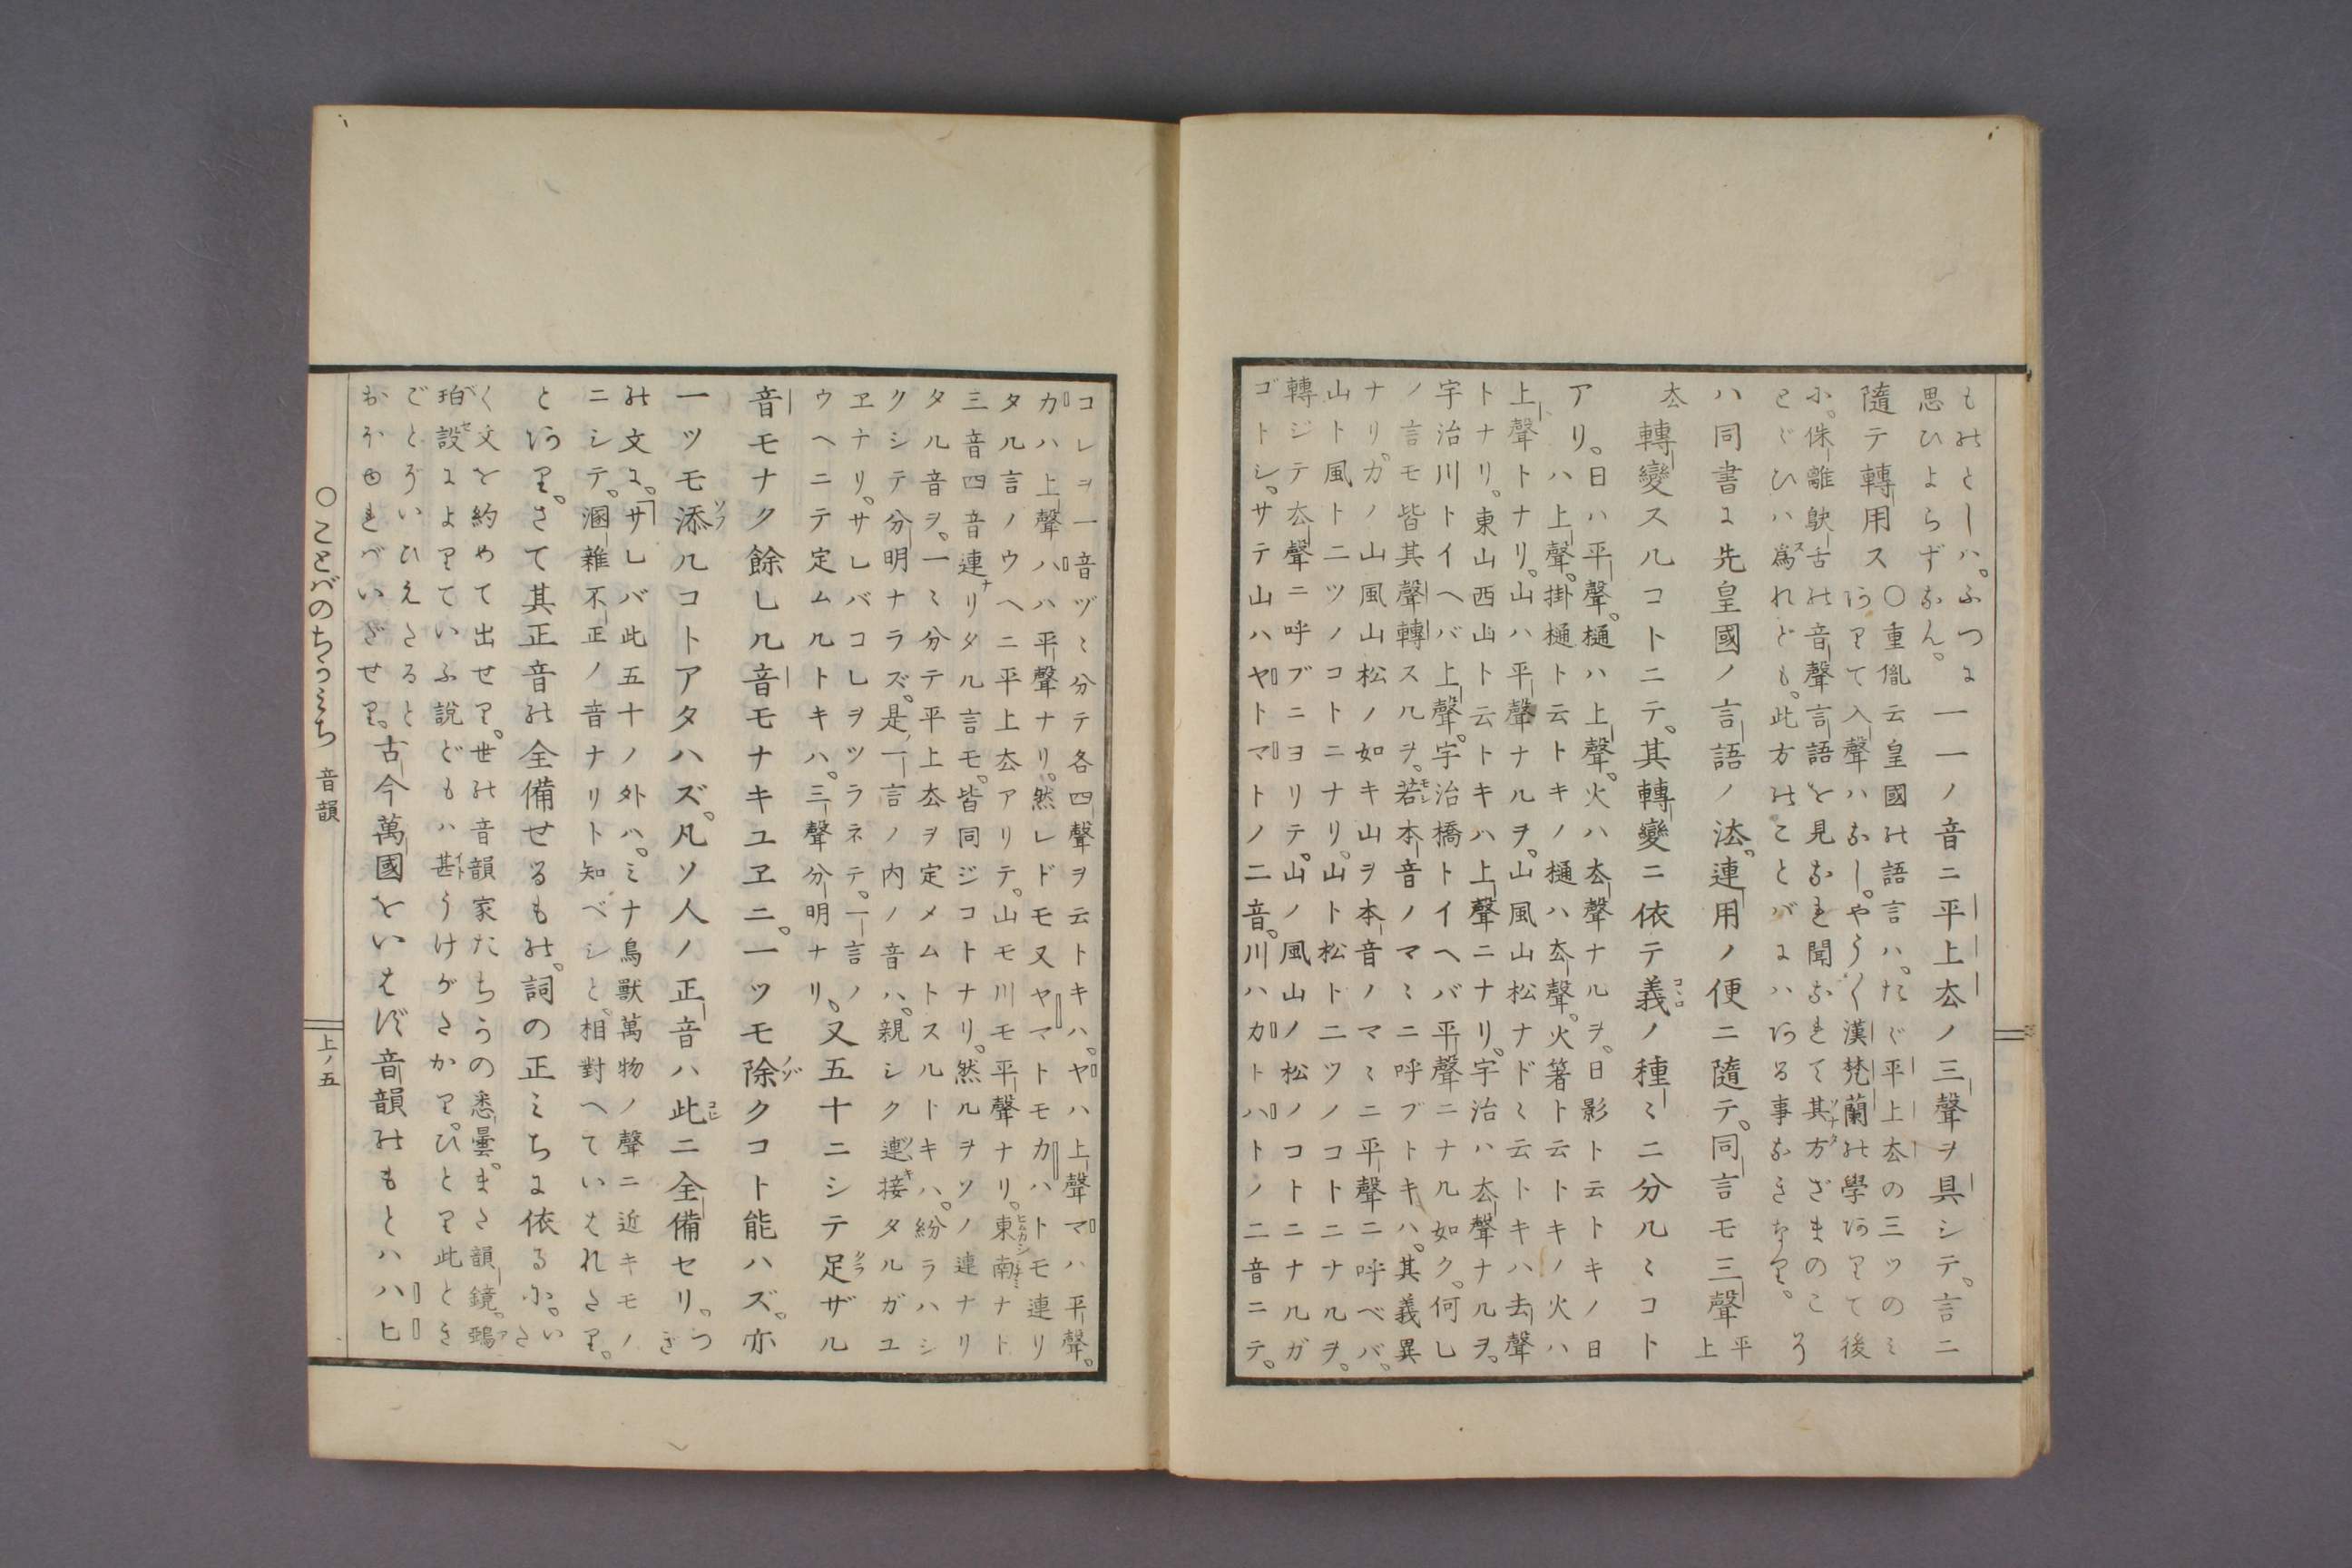 ものとしハ。ふつに
思ひよらずなん。
一一ノ音ニ平上去ノ三聲ヲ具シテ。言ニ
隨テ轉用ス
〇重胤云皇國の語言ハ。たゞ平上去の三ツのミ
ありて入聲ハなし。やう〱漢梵蘭の學ありて後
に。侏離鴃舌の音聲言語を見なれ聞なれて其方ざまのこ
とゞひハ爲れども。此方のことバにハある事なきなり。
う
ハ同書に先皇國ノ言語ノ法。連用ノ便ニ隨テ。同言モ三聲
平
上
去
轉變スルコトニテ。其轉變ニ依テ義ノ種〻ニ分ルヽコト
アリ。
日ハ平聲。樋ハ上聲。火ハ去聲ナルヲ。日影ト云トキノ日
ハ上聲。掛樋ト云トキノ樋ハ去聲。火箸ト云トキノ火ハ
上聲トナリ。山ハ平聲ナルヲ。山風山松ナドヽ云トキハ去聲
トナリ。東山西山ト云トキハ上聲ニナリ。宇治ハ去聲ナルヲ。
宇治川トイヘバ上聲。宇治橋トイヘバ平聲ニナル如ク。何レ
ノ言モ皆其聲轉スルヲ。若本音ノマヽニ呼ブトキハ。其義異
ナリ。カノ山風山松ノ如キ山ヲ本音ノマヽニ平聲ニ呼ベバ。
山ト風ト二ツノコトニナリ。山ト松ト二ツノコトニナルヲ。
轉ジテ去聲ニ呼ブニヨリテ。山ノ風山ノ松ノコトニナルガ
ゴトシ。サテ山ハヤトマトノ二音。川ハカトハトノ二音ニテ。
コレヲ一音ヅヽ分テ各四聲ヲ云トキハ。ヤハ上聲マハ平聲。
カハ上聲ハハ平聲ナリ。然レドモ又ヤマトモカハトモ連リ
タル言ノウヘニ平上去アリテ。山モ川モ平聲ナリ。東南ナト
三音四音連リタル言モ。皆同ジコトナリ。然ルヲソノ連ナリ
タル音ヲ。一〻分テ平上去ヲ定メムトスルトキハ。紛ラハシ
クシテ分明ナラズ。是一言ノ内ノ音ハ。親シク連接タルガユ
ヱナリ。サレバコレヲツラネテ。一言ノ
ウヘニテ定ムルトキハ。三聲分明ナリ。
又五十ニシテ足ザル
音モナク餘レル音モナキユヱニ。一ツモ除クコト能ハズ。亦
一ツモ添ルコトアタハズ。凡ソ人ノ正音ハ此ニ全備セリ。
つぎ
の文に。「サレバ此五十ノ外ハ。ミナ鳥獸萬物ノ聲ニ近キモノ
ニシテ。溷雜不正ノ音ナリト知ベシと。相對へていはれたり。
とあり。さて其正音の全備せるもの。詞の正ミちに依るに。
いた
く文を約めて出せり。世の音韻家たちうの悉曇。また韻鏡。鵶
珀設によりていふ說どもハ甚うけがたかり。ひとり此とき
ごとぞいひえたると
おぼゆればいざせり。
古今萬國をいはず音韻のもとハハヒ
〇ことばのちかミち
音韻
上ノ五